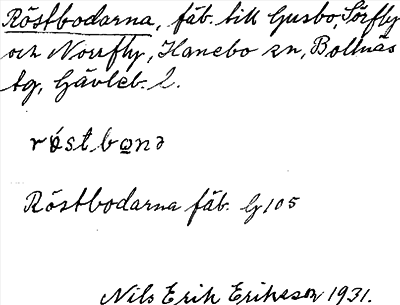 Röstbodarna, fäb. till Gusbo, Sörfly
och Norrfly, Hanebo sn, Bollnäs
tg, Gävleb. l.
Röstbodarna fäb. G 105
Nils Erik Eriksson 1931.